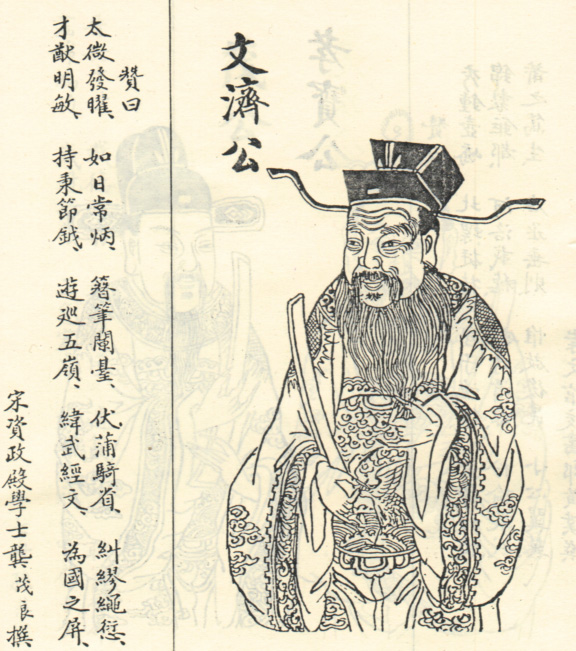 文濟公
贊曰
太微發曜、如日常炳、簪筆闌臺、伏蒲騎省、糾繆繩愆、
才猷明敏、持秉節鉞、遊廵五嶺、緯武經文、為國之屏、
宋資政殿學士龔茂良撰